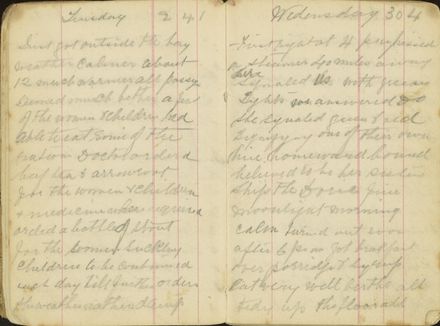 Tuesday 2
Just got outside the bay
weather calmer about
12 much warmer all
seemed much better a few
of the women & children had
able to eat some of the
Doctor ordered
beef tea & arrowroot
for the women & children
& medicine where required
ordered a bottle of stout
for the women suckling
children to be continued
each day till further orders
the weather rather damp
Wednesday 30 4
First night at 4 passed
a steamer 200 miles away
she signaled us with green
lights we answered Do
She signaled green & red
signify one of their own
line homeward bound
believed to be her sister
ship the Doric fine
moonlight morning
calm turned out soon
after 6 am got breakfast
over porridge
eat very well berths all
tidy up the floor all